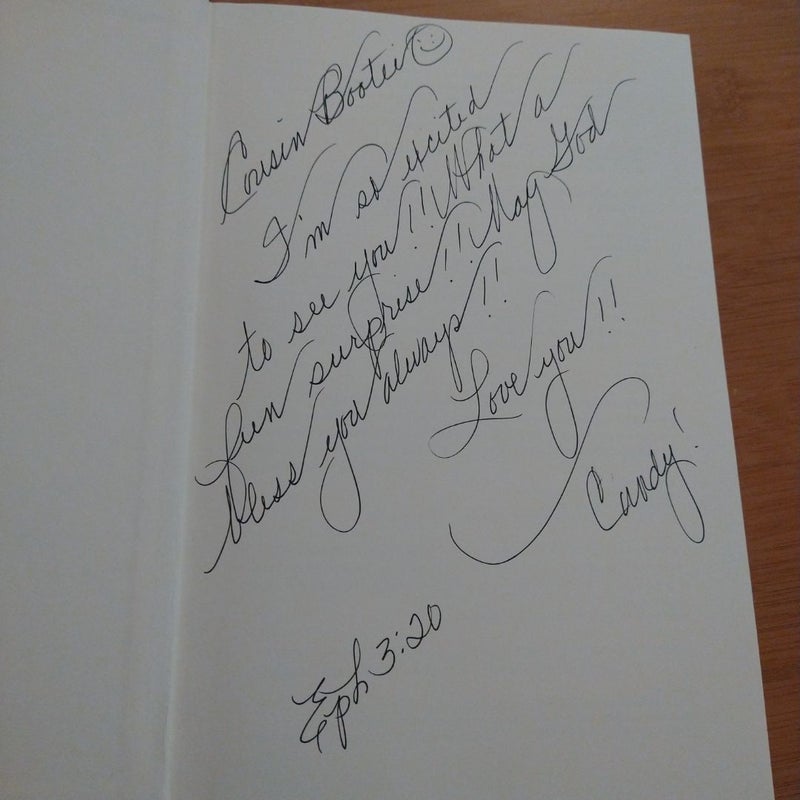 Cousin Bootee
I'm so excited
to see you!! What a
fun surprise!! May God
bless you always!!
Love you!!
Candy!
Eph 3:20